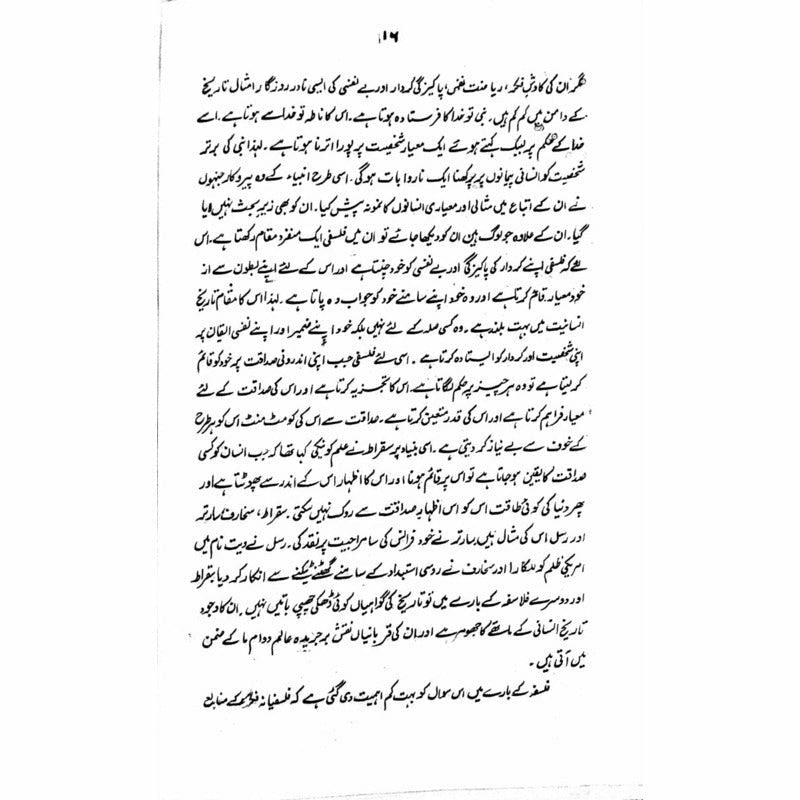 ۱۶
مگر ان کی کاوش فکر، ریاضت نفس، پاکیزگی کردار اور بے نفسی کی ایسی نادر روزگار امثال تاریخ
کے دامن میں کم کم ہیں۔ نبی تو خدا کا فرستادہ ہوتا ہے۔ اس کا ناطہ تو خدا سے ہوتا ہے۔ اسے
خدا کے حکم پر لبیک کہتے ہوئے ایک معیار شخصیت پر پورا اترنا ہوتا ہے۔ لہذا نبی کی برتر
شخصیت کو انسانی پیمانوں پر پرکھنا ایک ناروا بات ہوگی۔ اسی طرح انبیاء کے وہ پیروکار جنہوں
نے ان کے اتباع میں مثالی اور معیاری انسانوں کا نمونہ پیش کیا۔ ان کو بھی زیر بحث نہیں لایا
گیا۔ ان کے علاوہ جو لوگ ہیں ان کو دیکھا جائے تو ان میں فلسفی ایک منفرد مقام رکھتا ہے۔ اس
لئے کہ فلسفی اپنے کردار کی پاکیزگی اور بے نفسی کو خود چنتا ہے اور اس کے لئے اپنے بطون سے از
خود معیار قائم کرتا ہے اور وہ خود اپنے سامنے خود کو جواب دہ پاتا ہے۔ لہذا اس کا مقام تاریخ
انسانیت میں بہت بلند ہے۔ وہ کسی صلہ کے لئے نہیں بلکہ خود اپنے ضمیر اور اپنے نفسی ایقان پر
اپنی شخصیت اور کردار کو ایستادہ کرتا ہے۔ اسی لئے فلسفی جب اپنی اندرونی صداقت پر خود کو قائم
کر لیتا ہے تو وہ ہر چیز پر حکم لگاتا ہے۔ اس کا تجزیہ کرتا ہے اور اس کی صداقت کے لئے
معیار فراہم کرتا ہے اور اس کی قدر متعین کرتا ہے۔ صداقت سے اس کی کومٹ منٹ اس کو ہر طرح
کے خوف سے بے نیاز کر دیتی ہے۔ اسی بنیاد پر سقراط نے علم کو نیکی کہا تھا کہ جب انسان کو کسی
صداقت کا یقین ہو جاتا ہے تو اس پر قائم ہونا اور اس کا اظہار اس کے اندر سے پھوٹتا ہے اور
پھر دنیا کی کوئی طاقت اس کو اس اظہار صداقت سے روک نہیں سکتی۔ سقراط، سخاروف، سارتر
اور رسل اس کی مثال ہیں۔ سارتر نے خود فرانس کی سامراجیت پر نقد کی۔ رسل نے ویت نام میں
امریکی ظلم کو للکارا اور سخاروف نے روسی استبداد کے سامنے گھٹنے ٹیکنے سے انکار کر دیا۔ سقراط
اور دوسرے فلاسفہ کے بارے میں تو تاریخ کی گواہیاں کوئی ڈھکی چھپی باتیں نہیں۔ ان کا وجود
تاریخ انسانی کے ماتھے کا جھومر ہے اور ان کی قربانیاں نقش بر جریدہ عالم دوام ما کے ضمن
میں آتی ہیں۔
فلسفہ کے بارے میں اس سوال کو بہت کم اہمیت دی گئی ہے کہ فلسفیانہ فکر کے منابع